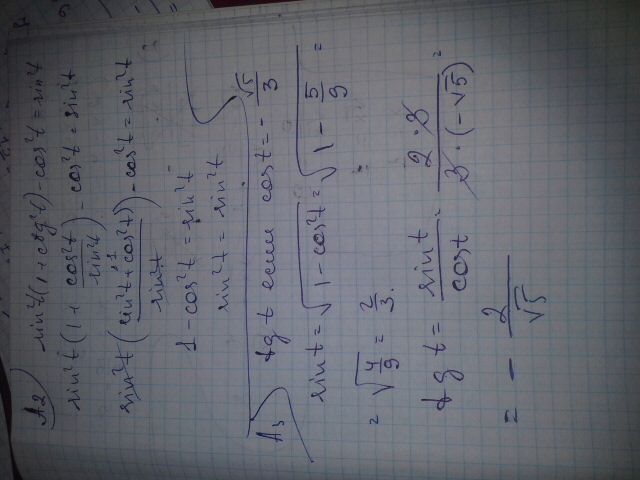 А2) sin²t(1 + ctg²t) - cos²t = sin²t
sin²t(1 + cos²t/sin²t) - cos²t = sin²t
sin²t((sin²t + cos²t)/sin²t) - cos²t = sin²t
1 - cos²t = sin²t
sin²t = sin²t
А3 tg t если cos t = - √5/3
sin t = √(1 - cos²t) = √(1 - 5/9) =
= √(4/9) = 2/3.
tg t = sin t/cos t = 2·3/(3·(-√5)) =
= - 2/√5